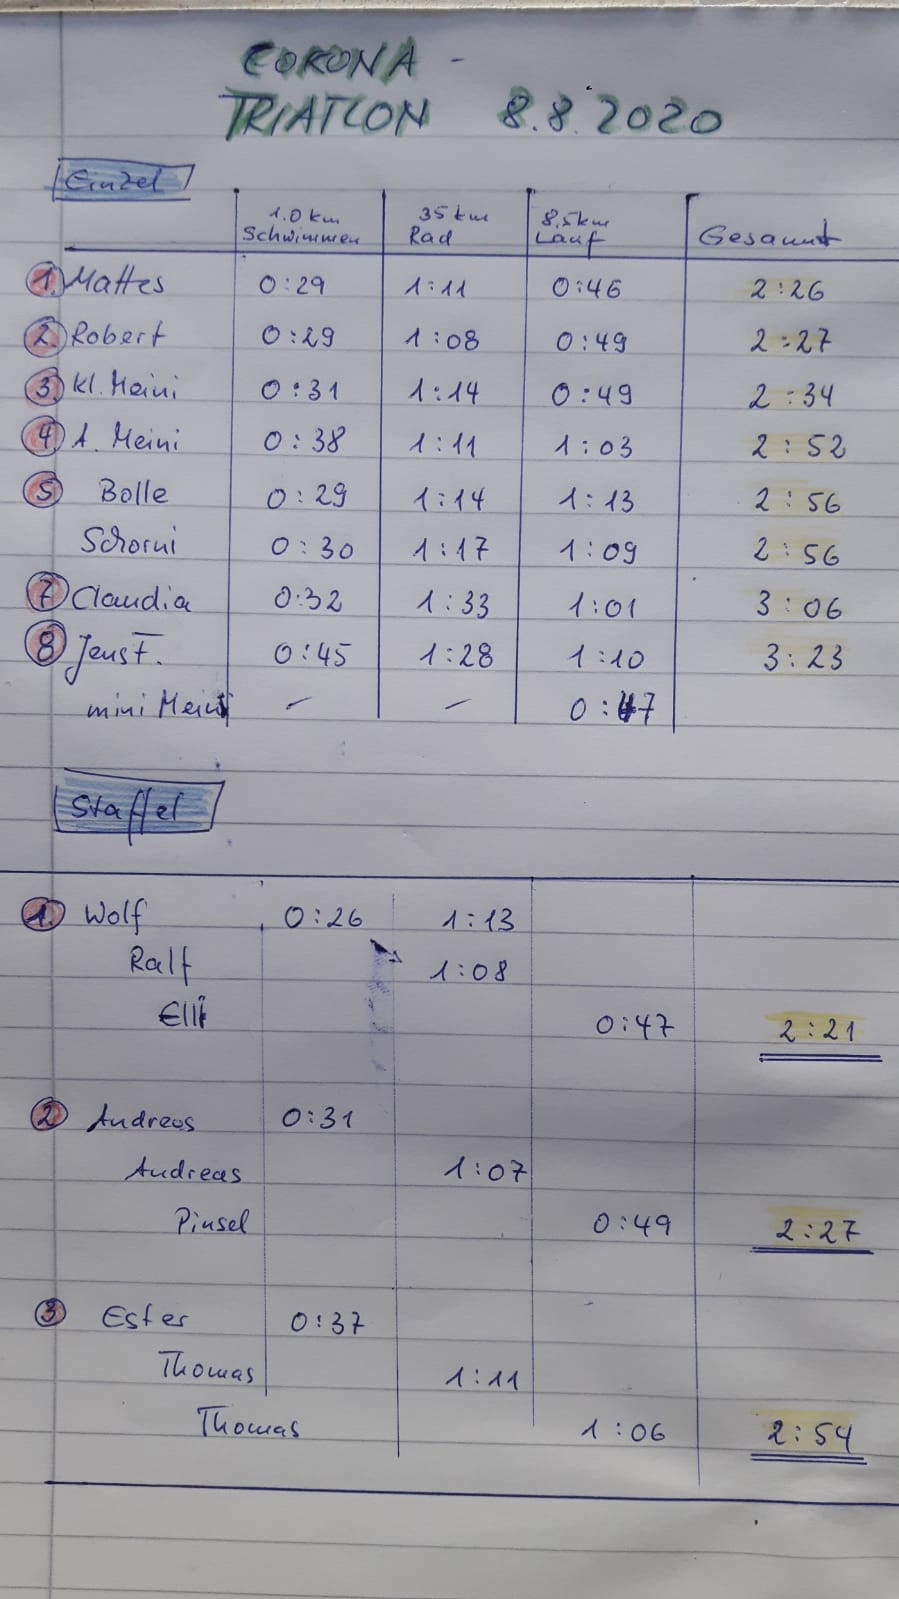 CORONA -
TRIATLON 8.8.2020
Einzel
1.0 km Schwimmen 35 km Rad 8,5km Lauf Gesamt
1. Mattes 0:29 1:11 0:46 2:26
2. Robert 0:29 1:08 0:49 2:27
3. kl. Meini 0:31 1:14 0:49 2:34
4 A. Meini 0:38 1:11 1:03 2:52
5 Bolle 0:29 1:14 1:13 2:56
Schorni 0:30 1:17 1:09 2:56
7 Claudia 0:32 1:33 1:01 3:06
8 Jens F. 0:45 1:28 1:10 3:23
mini Meini – – 0:47
Staffel
1. Wolf 0:26 1:13
Ralf 1:08
Elli 0:47 2:21
2 Andreas 0:31
Andreas 1:07
Pinsel 0:49 2:27
3 Ester 0:37
Thomas 1:11
Thomas 1:06 2:54